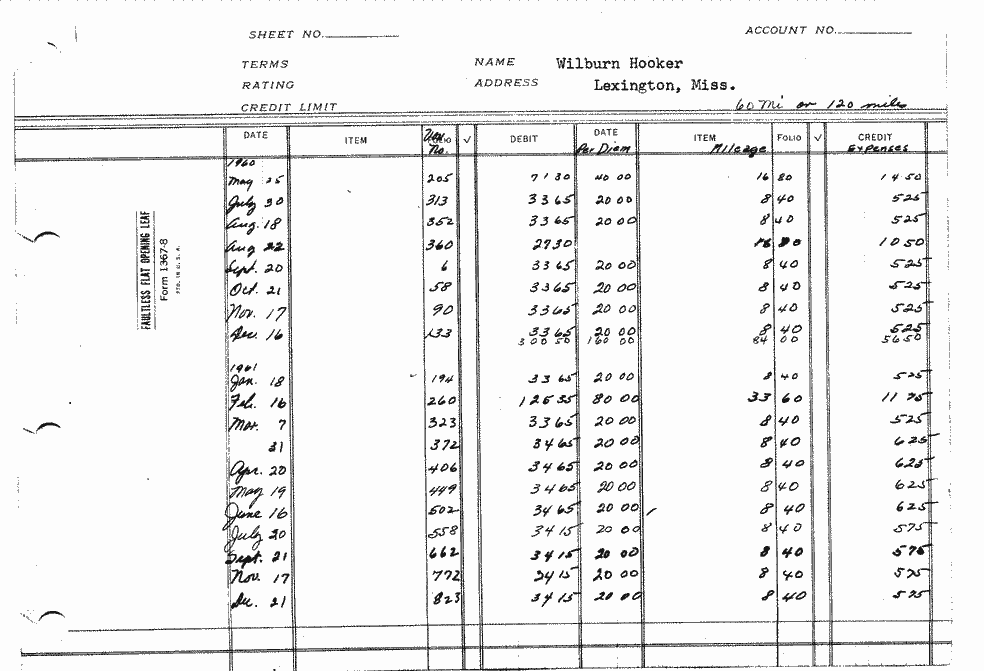 SHEET NO.
ACCOUNT NO.
TERMS NAME Wilburn Hooker
RATING ADDRESS Lexington, Miss.
CREDIT LIMIT 60 mi or 120 miles
DATE ITEM No. ✓ DEBIT DATE Per Diem ITEM Mileage FOLIO ✓ CREDIT Expenses
1960
May 25 205 71 30 40 00 16 80 14 50
July 30 313 33 65 20 00 8 40 5 25
Aug. 18 352 33 65 20 00 8 40 5 25
Aug 22 360 27 30 10 50
Sept. 20 6 33 65 20 00 8 40 5 25
Oct. 21 58 33 65 20 00 8 40 5 25
Nov. 17 90 33 65 20 00 8 40 5 25
Dec. 16 133 33 65 20 00 8 40 5 25
300 50 160 00 84 00 56 50
1961
Jan. 18 194 33 65 20 00 8 40 5 25
Feb. 16 260 125 35 80 00 33 60 11 75
Mar. 7 323 33 65 20 00 8 40 5 25
31 372 34 65 20 00 8 40 6 25
Apr. 20 406 34 65 20 00 8 40 6 25
May 19 449 34 65 20 00 8 40 6 25
June 16 502 34 65 20 00 8 40 6 25
July 20 558 34 15 20 00 8 40 5 75
Sept. 21 662 34 15 20 00 8 40 5 75
Nov. 17 772 34 15 20 00 8 40 5 75
Dec. 21 823 34 15 20 00 8 40 5 75
FAULTLESS FLAT OPENING LEAF
Form 1367-8